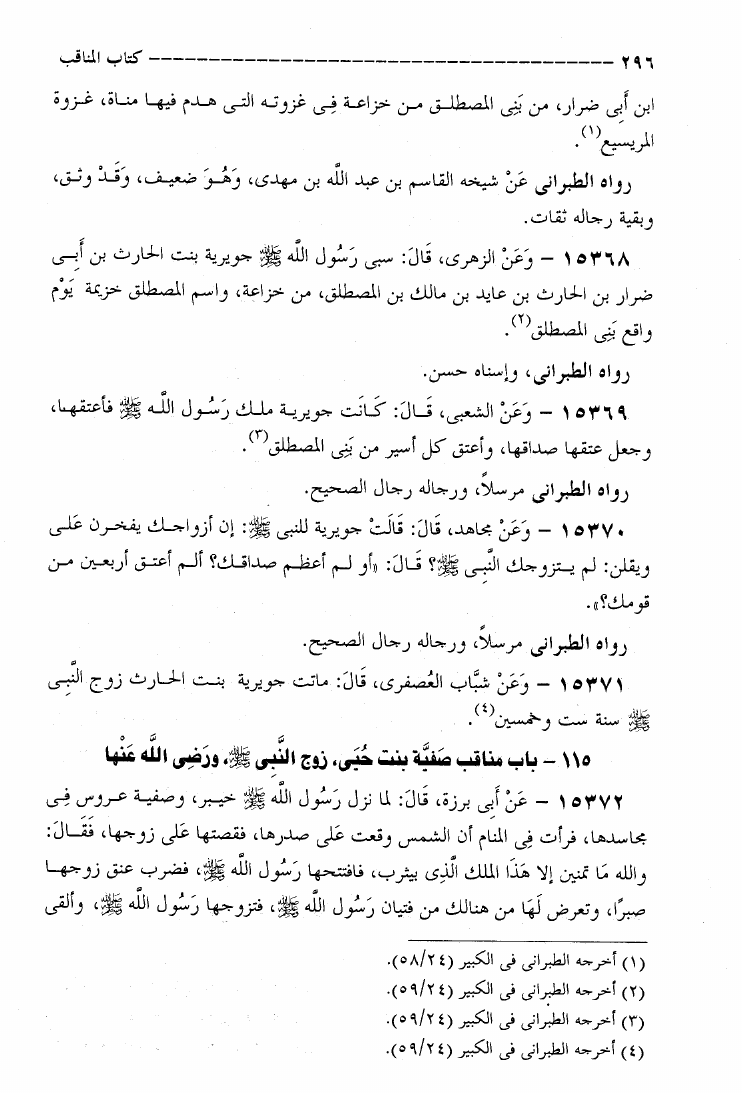 ٢٩٦ ـــــــــــــــــــــــــــــــــــــــــــــــــــــــــــــــ كتاب المناقب
ابن أَبِى ضرار، من بَنِى المصطلـق مـن خزاعـة فِـى غزوتـه التـى هـدم فيهـا منـاة، غـزوة
المريسيع(١).
رواه الطبرانى عَنْ شيخه القاسم بن عبد اللَّه بن مهدى، وَهُـوَ ضعيـف، وَقَـدْ وثـق،
وبقية رجاله ثقات.
١٥٣٦٨ – وَعَنْ الزهرى، قَالَ: سبى رَسُول اللَّه ﷺ جويرية بنت الحارث بن أَبِـى
ضرار بن الحارث بن عايد بن مالك بن المصطلق، من خزاعة، واسم المصطلق خزيمة يَوْم
واقع بَنِى المصطلق(٢).
رواه الطبرانى، وإسناه حسن.
١٥٣٦٩ – وَعَنْ الشعبى، قَـالَ: كَـانَت جويريـة ملـك رَسُـول اللَّـه ﷺ فأعتقهـا،
وجعل عتقها صداقها، وأعتق كل أسير من بَنِى المصطلق(٣).
رواه الطبرانى مرسلاً، ورجاله رجال الصحيح.
١٥٣٧٠ – وَعَنْ مجاهد، قَالَ: قَالَتْ جويرية للنبى ﷺ: إن أزواجـك يفخـرن عَلـى
ويقلن: لم يـتزوجك النَّبِـى ﷺ؟ قَـالَ: «أو لـم أعظـم صداقـك؟ ألـم أعتـق أربعـين مـن
قومك؟».
رواه الطبرانى مرسلاً، ورجاله رجال الصحيح.
١٥٣٧١ – وَعَنْ شبَّاب العُصفرى، قَالَ: ماتت جويرية بنـت الحـارث زوج النَّبِـى
ﷺ سنة ست وخمسين(٤).
١١٥ – باب مناقب صَفيَّة بنت حُيَى، زوج النَّبِى ﷺ، ورَضِى اللَّه عَنْها
١٥٣٧٢ – عَنْ أَبِى برزة، قَالَ: لما نزل رَسُول اللَّه ﷺ خيـبر، وصفيـة عـروس فِـى
مجاسدها، فرأت فِى المنام أن الشمس وقعت عَلَى صدرها، فقصتها عَلَى زوجها، فَقَـالَ:
والله مَا تمنين إلا هَذَا الملك الَّذِى بيثرب، فافتتحها رَسُول اللَّه ﷺ، فضرب عنق زوجهـا
صبرًا، وتعرض لَهَا من هنالك من فتيان رَسُول اللَّه ﷺ، فتزوجها رَسُول اللَّه ﷺ، وألقى
(١) أخرجه الطبرانى فى الكبير (٥٨/٢٤).
(٢) أخرجه الطبرانى فى الكبير (٥٩/٢٤).
(٣) أخرجه الطبرانى فى الكبير (٥٩/٢٤).
(٤) أخرجه الطبرانى فى الكبير (٥٩/٢٤).